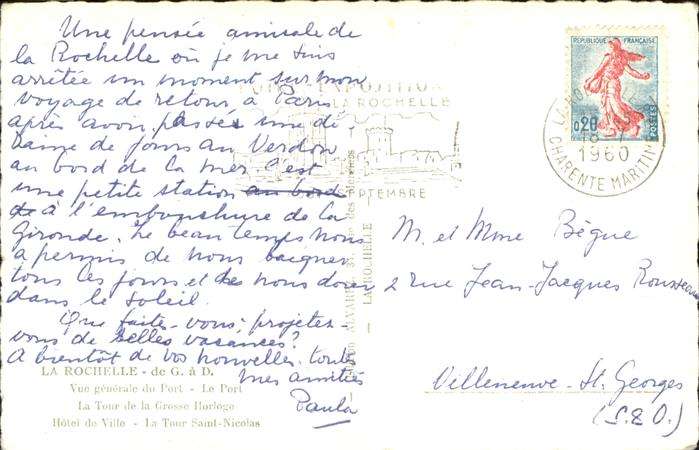 Une pensée amicale de
la Rochelle où je me suis
arrêtée un moment sur mon
voyage de retour à Paris
après avoir passé une di-
zaine de jours au Verdon
au bord de la mer. C'est
une petite station au bord
de à l'embouchure de la
Gironde. Le beau temps nous
a permis de nous baigner
tous les jours et de nous dorer
dans le soleil.
Que faites-vous? projetez-
vous de belles vacances?
A bientôt de vos nouvelles. toutes
mes amitiés
Paula
LA ROCHELLE - de G. à D.
Vue générale du Port - Le Port
La Tour de la Grosse Horloge
Hôtel de Ville - La Tour Saint-Nicolas
EXPOSITION
LA ROCHELLE
SEPTEMBRE
LA ROCHELLE
REPUBLIQUE FRANÇAISE
0,20
POSTES
18
1960
CHARENTE MARITIME
M. et Mme Bègue
2 rue Jean-Jacques Rousseau
Villeneuve-St. Georges
(S.&O.)